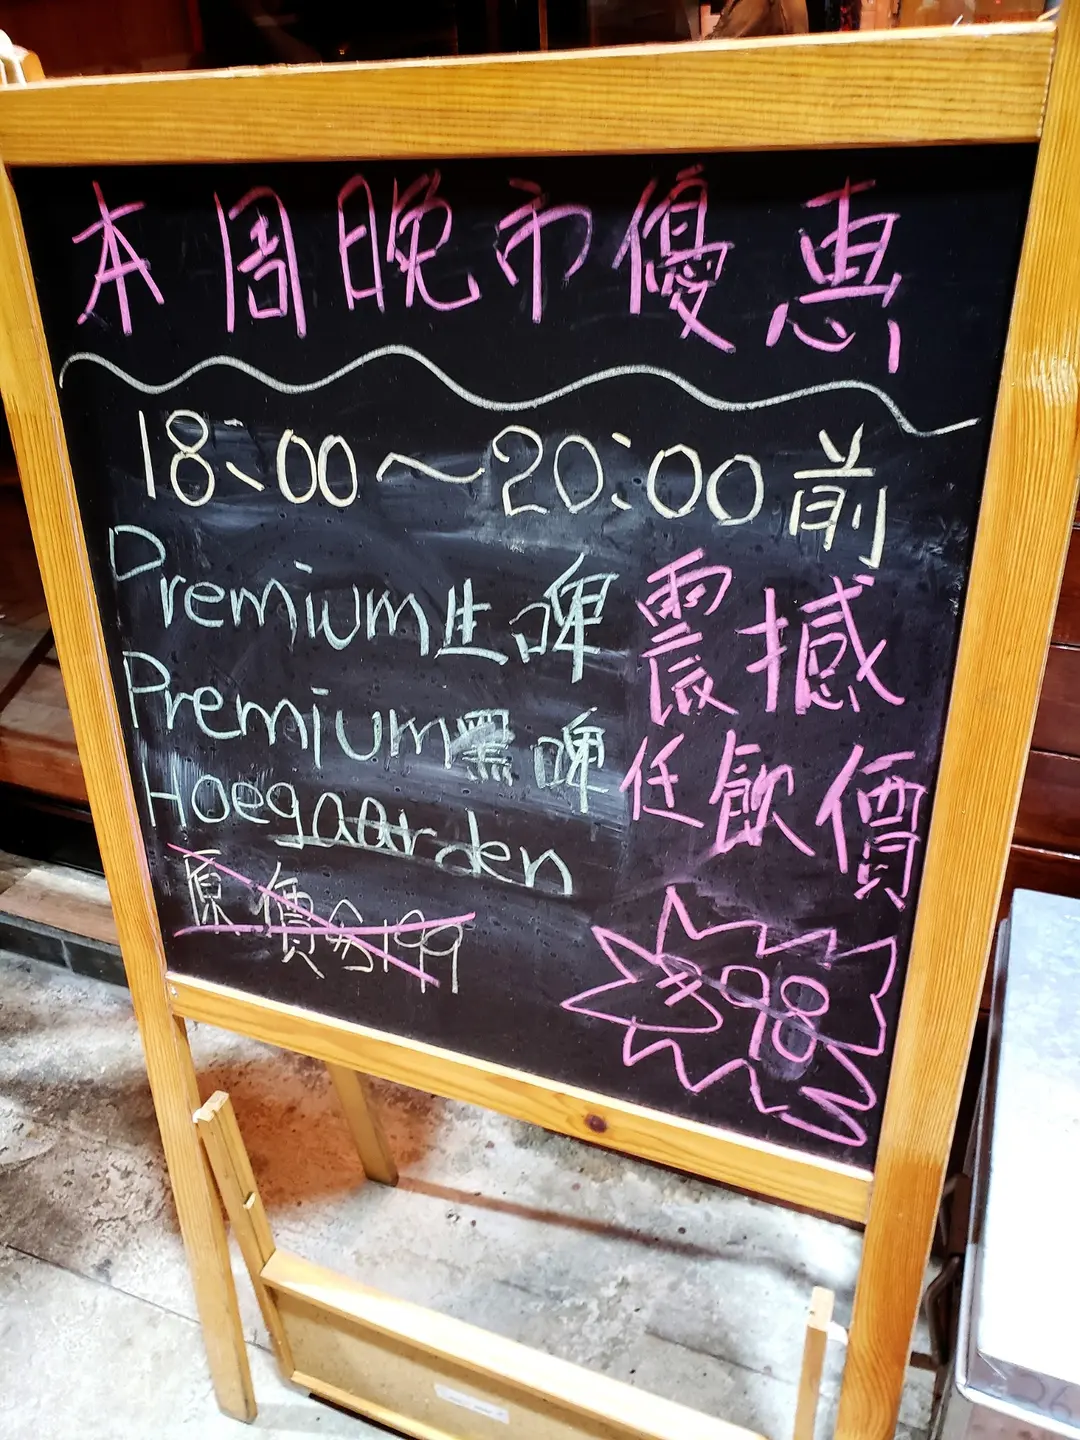 本周晚市優惠
18:00~20:00前
Premium生啤
Premium黑啤
Hoegaarden
原價$199
震撼
任飲價
$98